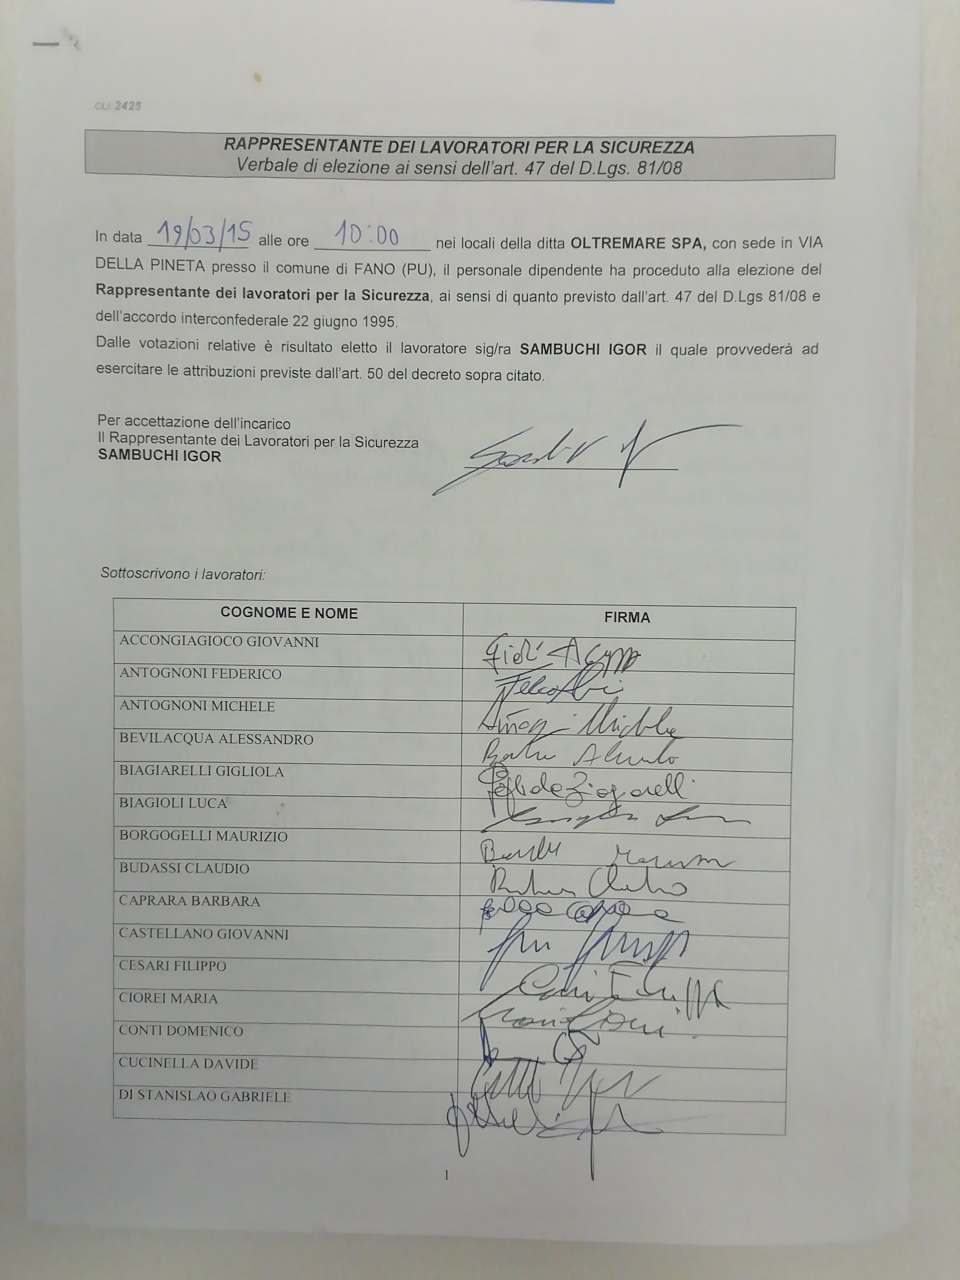 CLI 2425
RAPPRESENTANTE DEI LAVORATORI PER LA SICUREZZA
Verbale di elezione ai sensi dell'art. 47 del D.Lgs. 81/08
In data 19/03/15 alle ore 10:00 nei locali della ditta OLTREMARE SPA, con sede in VIA
DELLA PINETA presso il comune di FANO (PU), il personale dipendente ha proceduto alla elezione del
Rappresentante dei lavoratori per la Sicurezza, ai sensi di quanto previsto dall'art. 47 del D.Lgs 81/08 e
dell'accordo interconfederale 22 giugno 1995.
Dalle votazioni relative è risultato eletto il lavoratore sig/ra SAMBUCHI IGOR il quale provvederà ad
esercitare le attribuzioni previste dall'art. 50 del decreto sopra citato.
Per accettazione dell'incarico
Il Rappresentante dei Lavoratori per la Sicurezza
SAMBUCHI IGOR
Sottoscrivono i lavoratori:
COGNOME E NOME FIRMA
ACCONGIAGIOCO GIOVANNI
ANTOGNONI FEDERICO
ANTOGNONI MICHELE
BEVILACQUA ALESSANDRO
BIAGIARELLI GIGLIOLA
BIAGIOLI LUCA
BORGOGELLI MAURIZIO
BUDASSI CLAUDIO
CAPRARA BARBARA
CASTELLANO GIOVANNI
CESARI FILIPPO
CIOREI MARIA
CONTI DOMENICO
CUCINELLA DAVIDE
DI STANISLAO GABRIELE
1